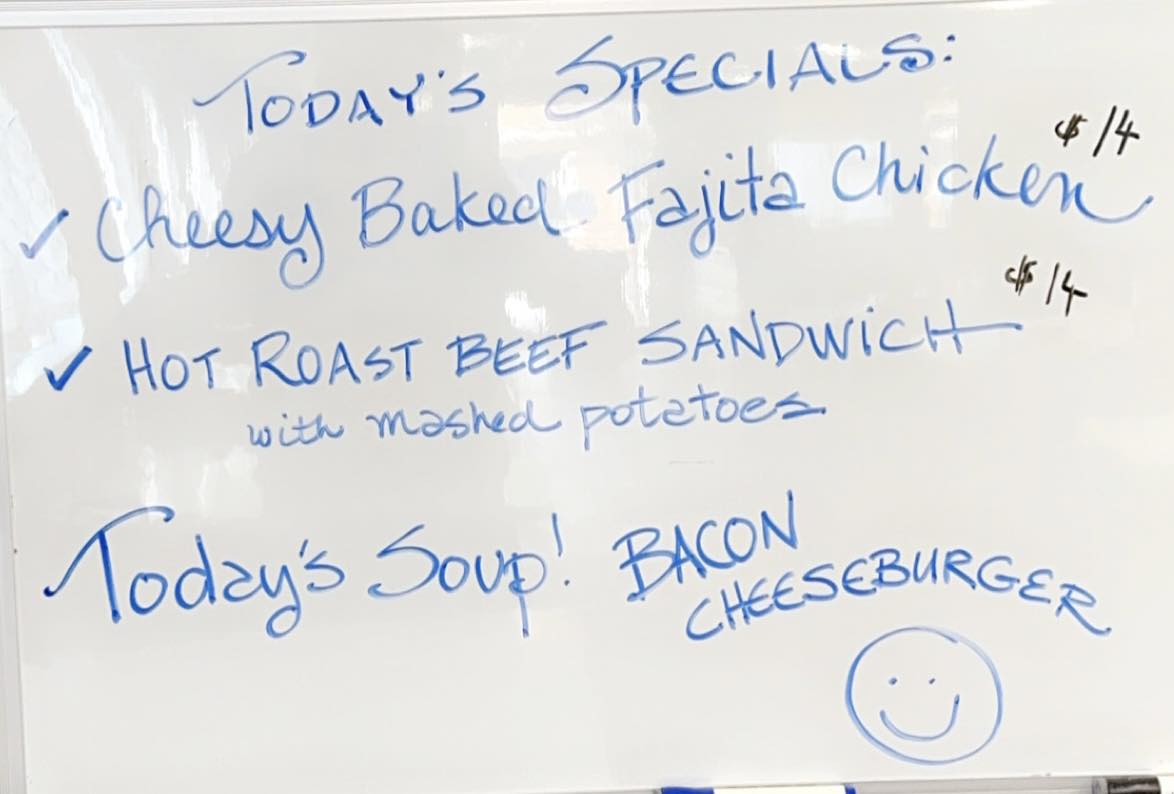 TODAY'S SPECIALS:
$14
✓ Cheesy Baked Fajita Chicken
$14
✓ HOT ROAST BEEF SANDWICH
with mashed potatoes
Today's Soup! BACON
CHEESEBURGER